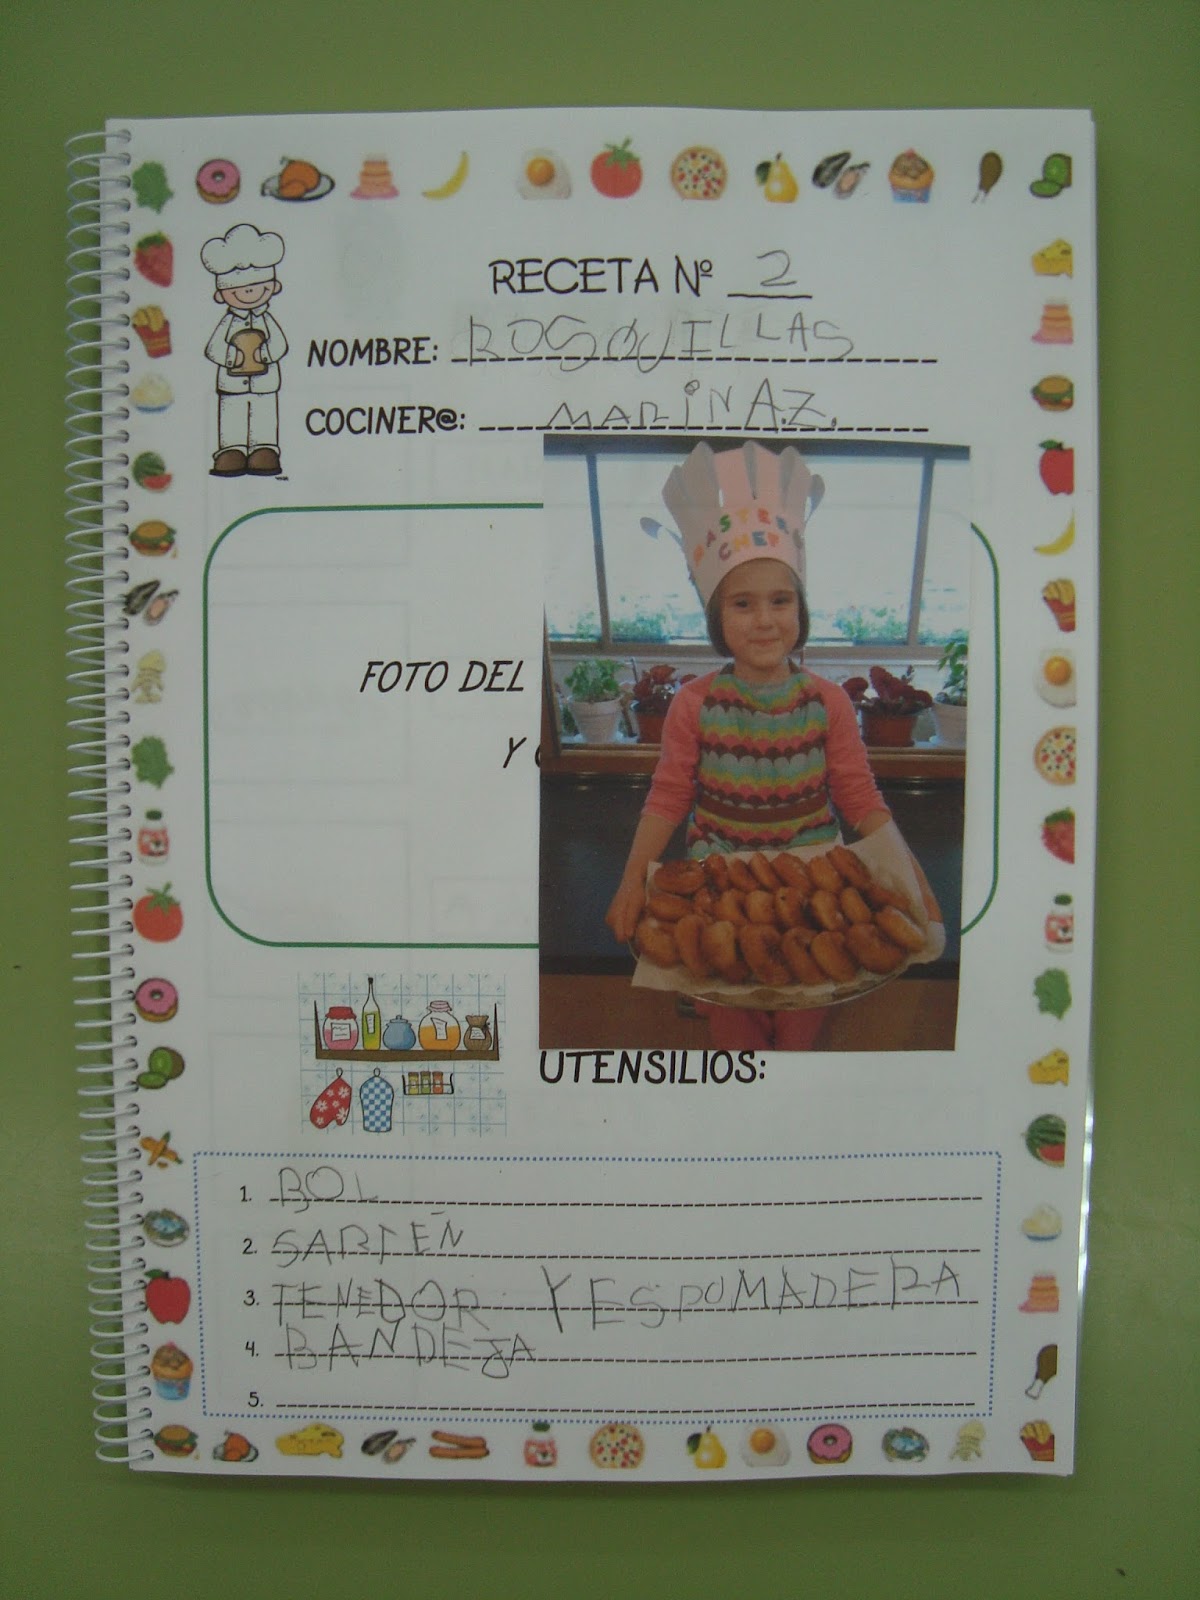 RECETA Nº 2
NOMBRE: ROSQUILLAS
COCINER@: MARINA.Z.
MASTER
CHEF
FOTO DEL
Y
UTENSILIOS:
1. BOL
2. SARTEÑ
3. TENEDOR Y ESPOMADERA
4. BANDEJA
5.